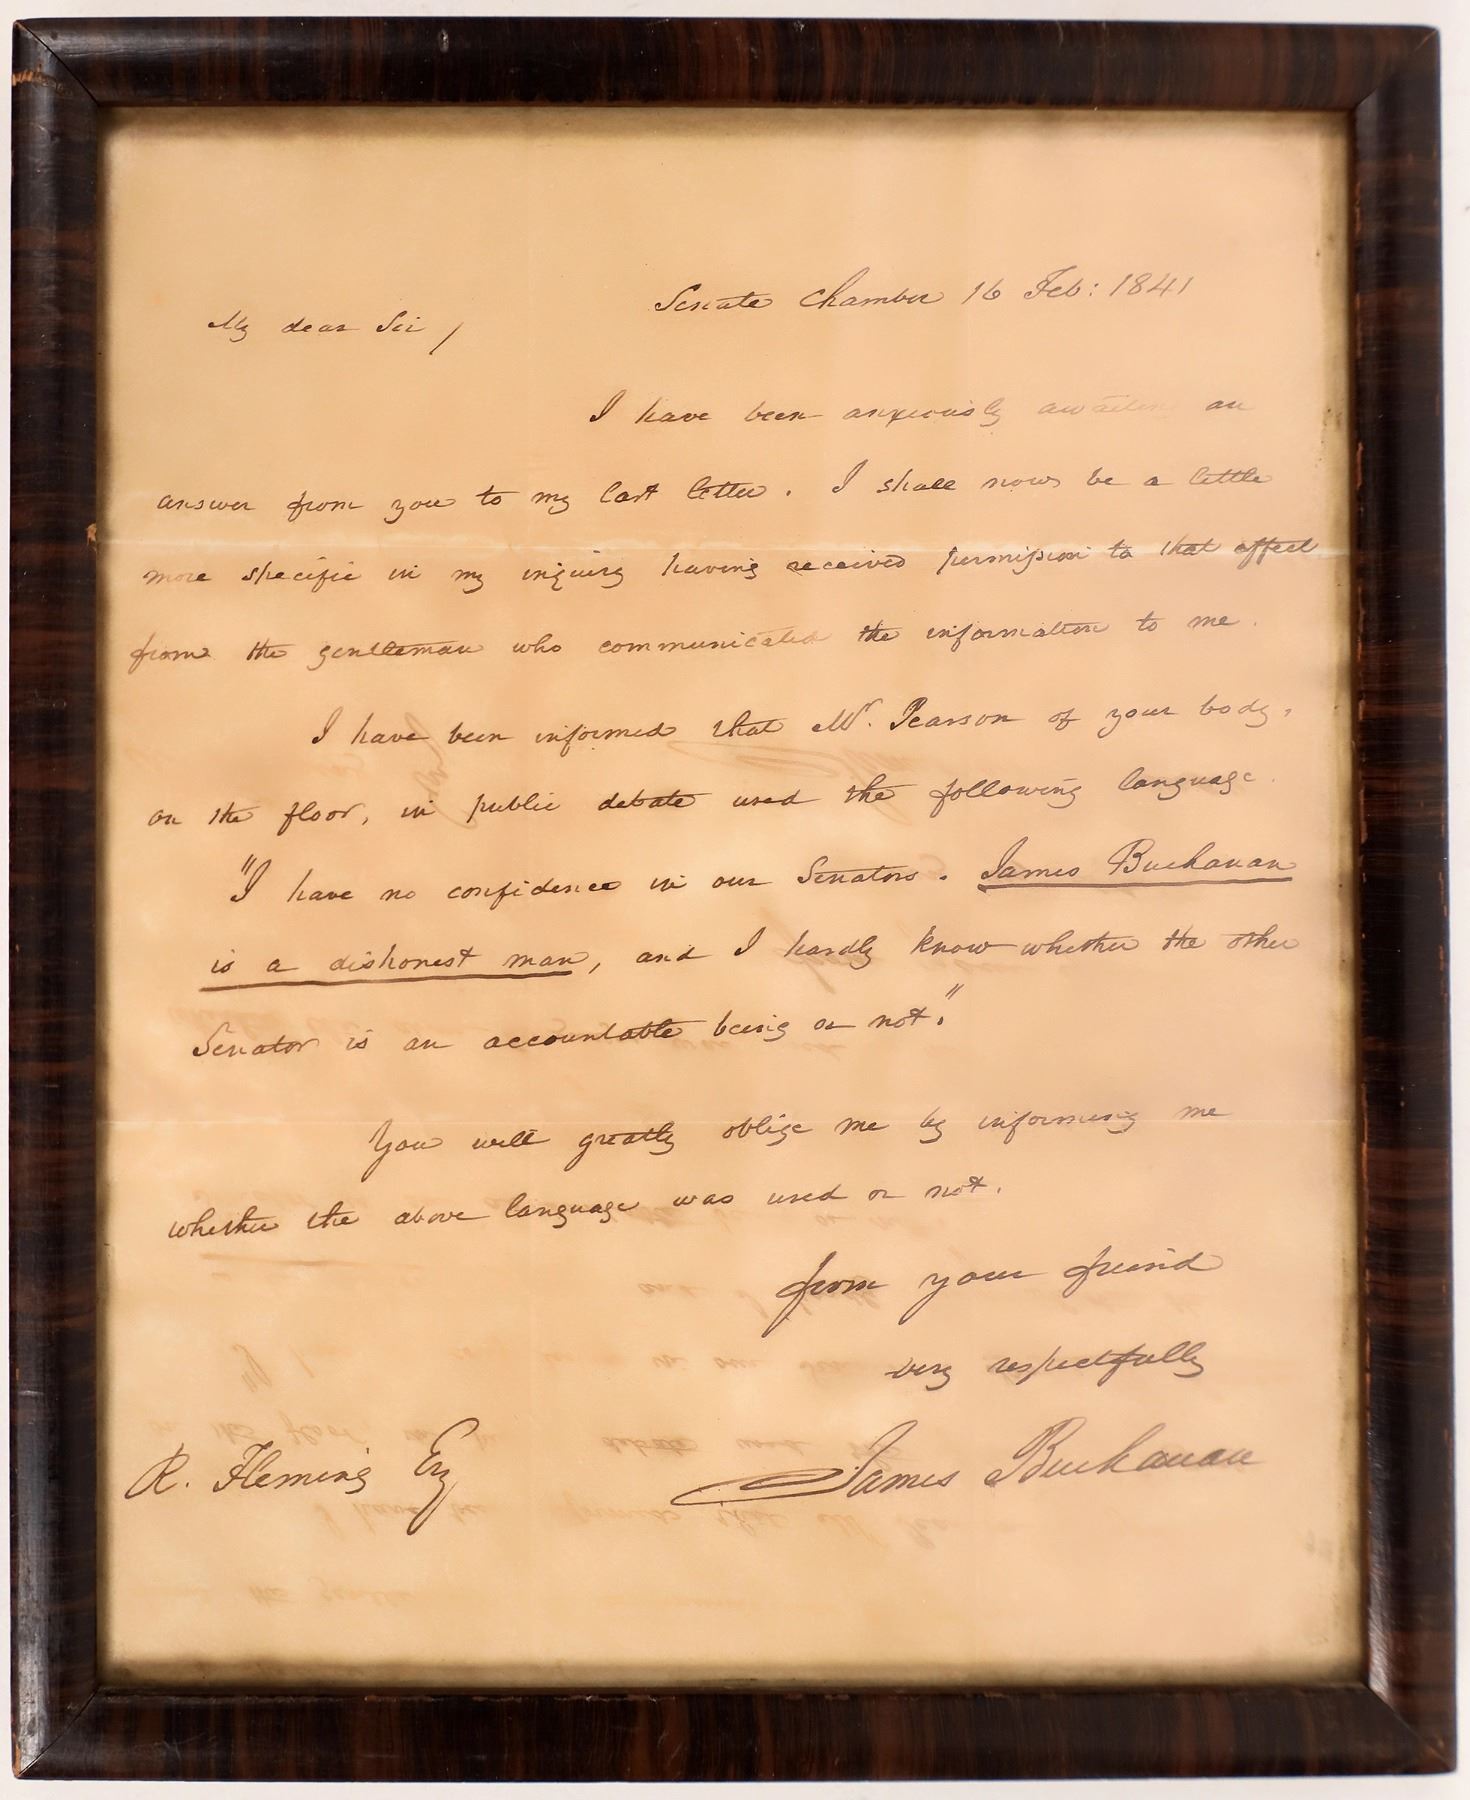 Senate Chamber 16 Feb: 1841
My dear Sir,
I have been anxiously awaiting an
answer from you to my last letter. I shall now be a little
more specific in my inquiry having received permission to that effect
from the gentleman who communicated the information to me.
I have been informed that Mr. Pearson of your body,
on the floor, in public debate used the following language.
"I have no confidence in our Senators. James Buchanan
is a dishonest man, and I hardly know whether the other
Senator is an accountable being or not."
You will greatly oblige me by informing me
whether the above language was used or not.
from your friend
very respectfully
James Buchanan
R. Fleming Esq